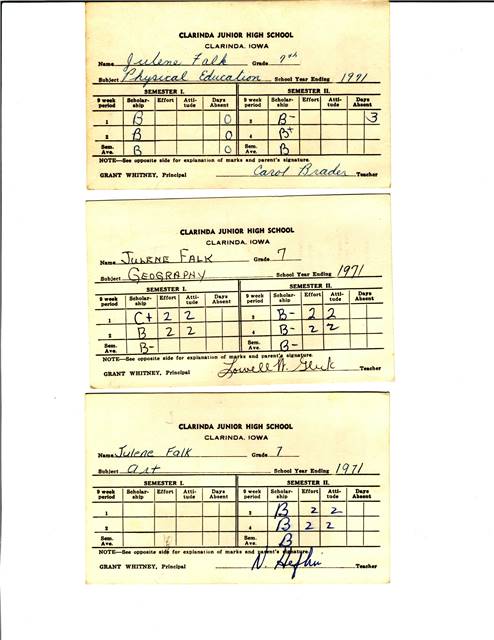 CLARINDA JUNIOR HIGH SCHOOL
CLARINDA, IOWA
Name Julene Falk Grade 7th
Subject Physical Education School Year Ending 1971
SEMESTER I. SEMESTER II.
9 week period Scholarship Effort Attitude Days Absent 9 week period Scholarship Effort Attitude Days Absent
1 B 0 3 B- 3
2 B 0 4 B+
Sem. Ave. B 0 Sem. Ave. B
NOTE—See opposite side for explanation of marks and parent's signature.
GRANT WHITNEY, Principal Carol Brader Teacher
CLARINDA JUNIOR HIGH SCHOOL
CLARINDA, IOWA
Name JULENE FALK Grade 7
Subject GEOGRAPHY School Year Ending 1971
SEMESTER I. SEMESTER II.
9 week period Scholar-ship Effort Atti-tude Days Absent 9 week period Scholar-ship Effort Atti-tude Days Absent
1 C+ 2 2 3 B- 2 2
2 B 2 2 4 B- 2 2
Sem. Ave. B- Sem. Ave. B-
NOTE—See opposite side for explanation of marks and parent's signature.
GRANT WHITNEY, Principal Lowell W. Teacher
CLARINDA JUNIOR HIGH SCHOOL
CLARINDA, IOWA
Name Julene Falk Grade 7
Subject Art School Year Ending 1971
SEMESTER I. SEMESTER II.
9 week period Scholar-ship Effort Atti-tude Days Absent 9 week period Scholar-ship Effort Atti-tude Days Absent
1 3 B 2 2
2 4 B 2 2
Sem. Ave. Sem. Ave. B
NOTE—See opposite side for explanation of marks and parent's signature.
GRANT WHITNEY, Principal N. Teacher